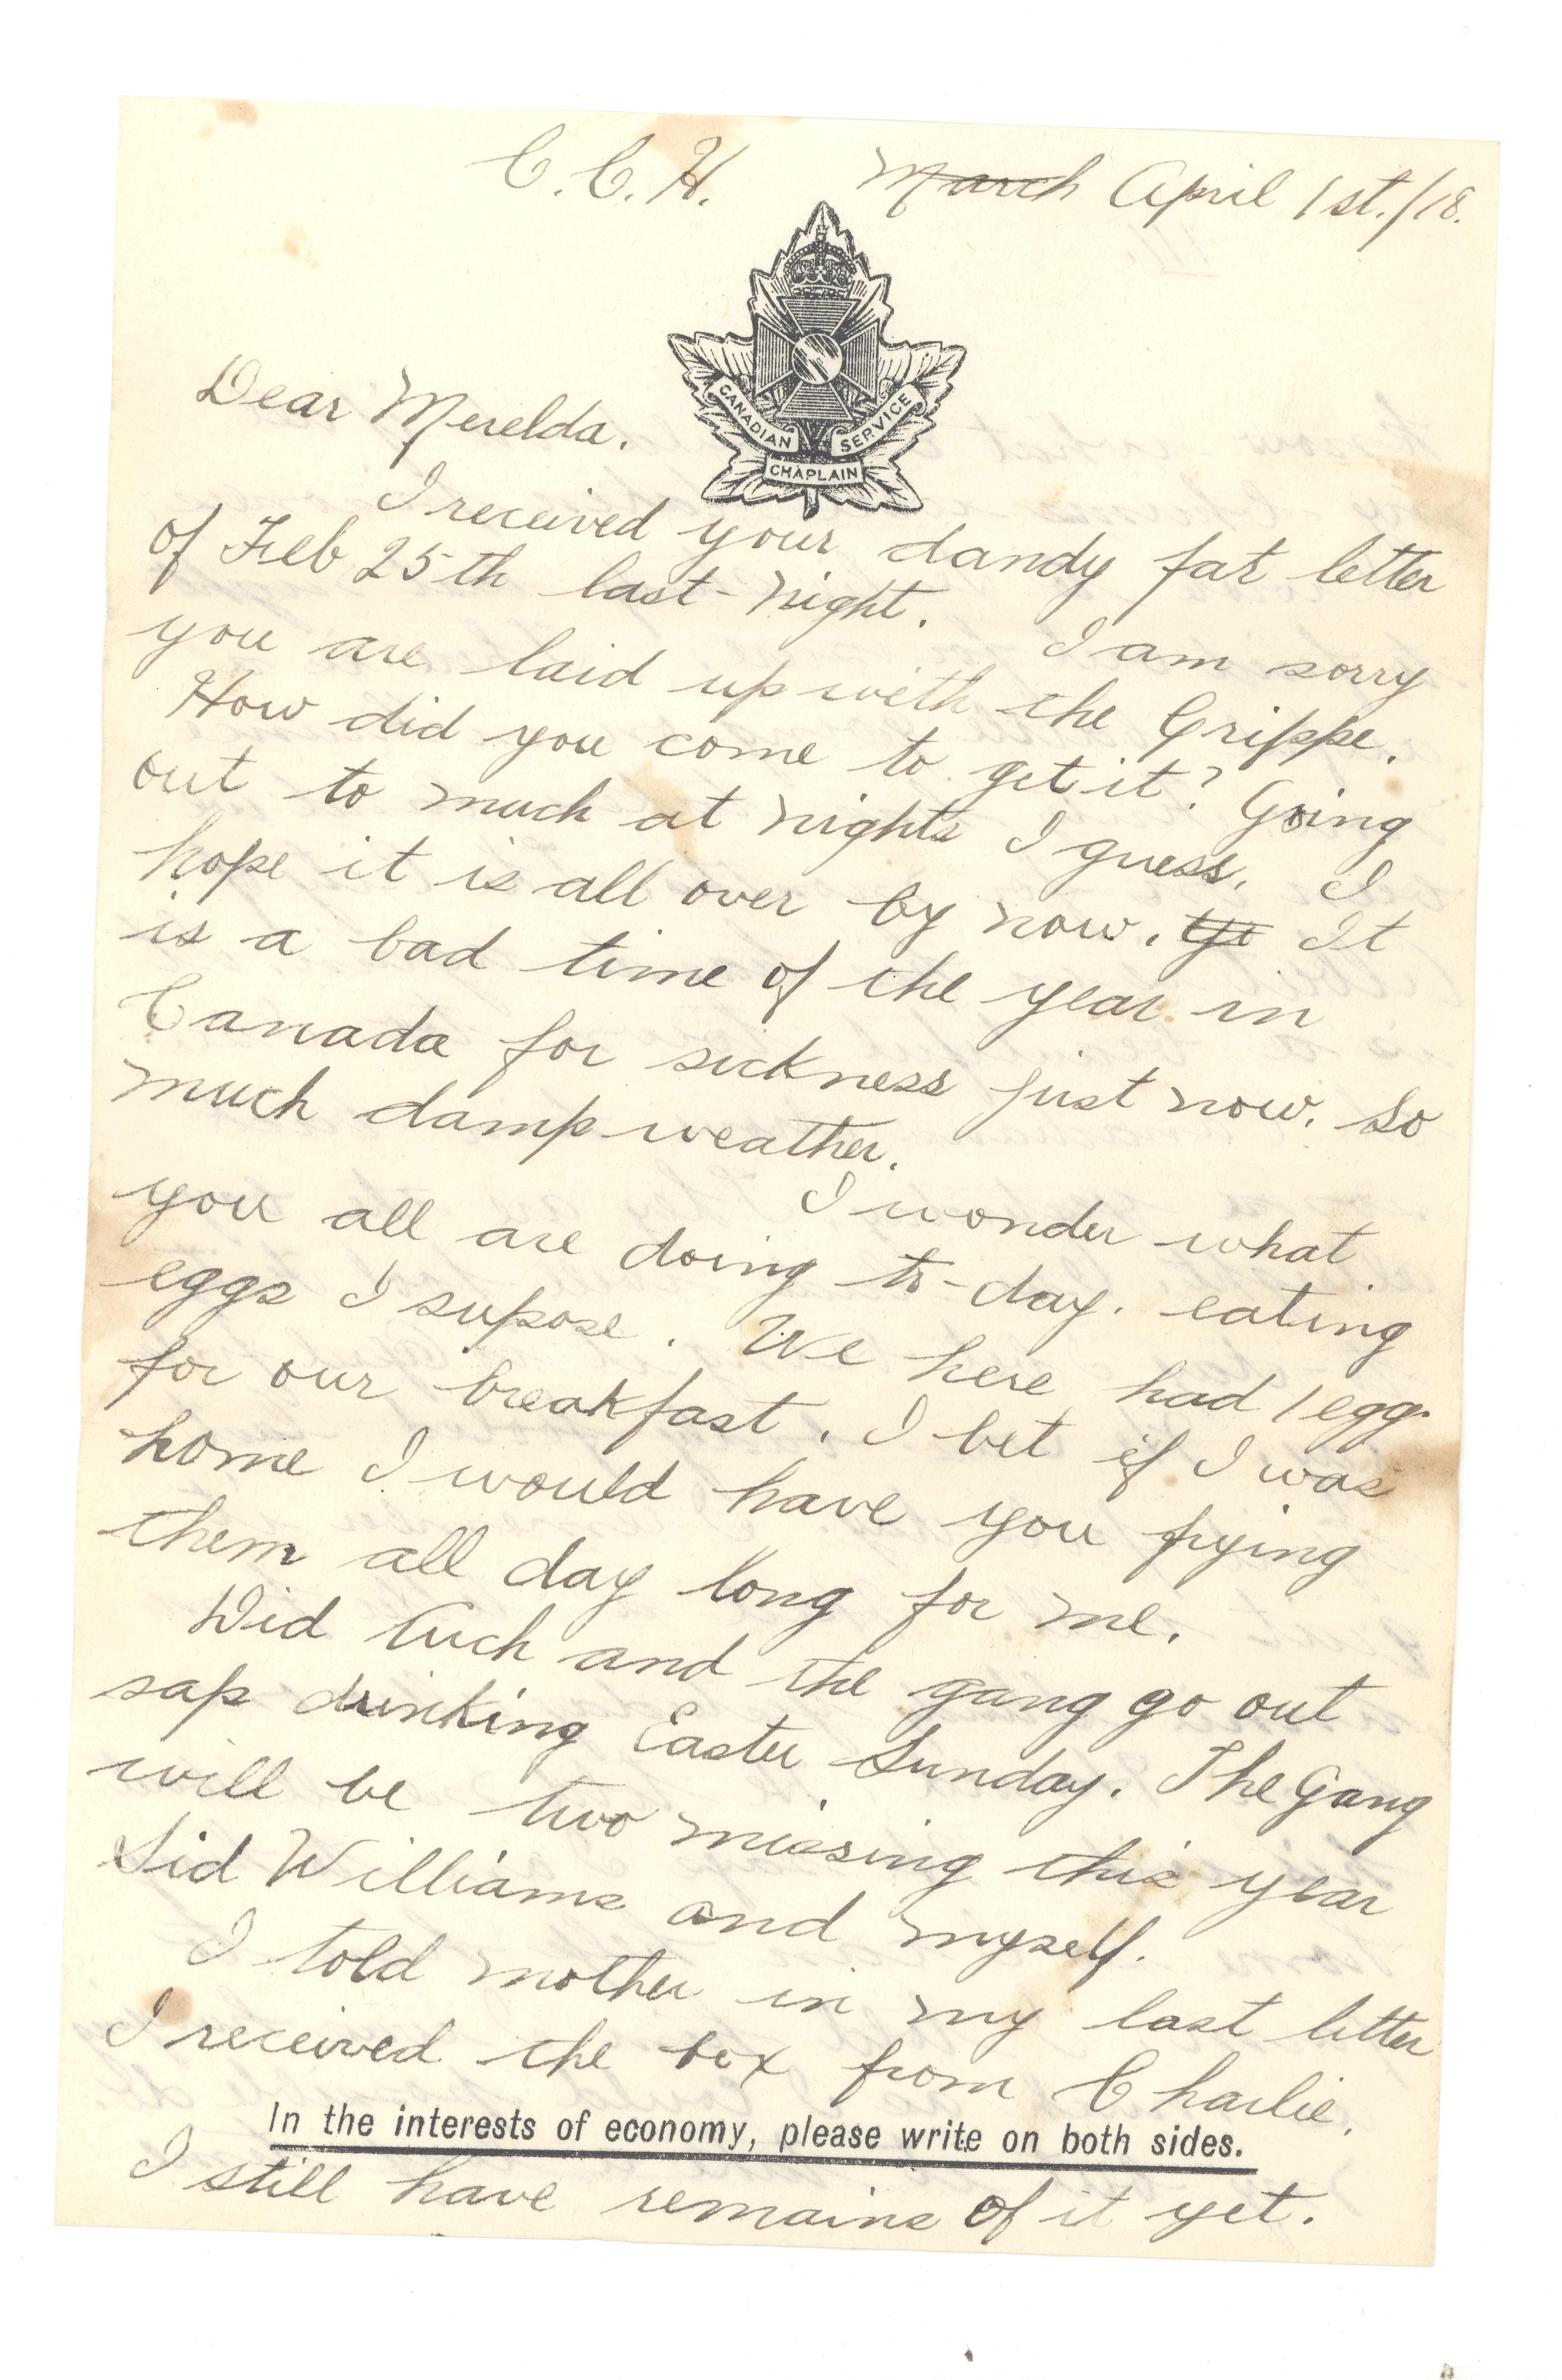 C.C.H. ~~March~~ April 1st./18.
CANADIAN CHAPLAIN SERVICE
Dear Merelda.
I received your dandy fat letter
of Feb 25th last-night. I am sorry
you are laid up with the Grippe.
How did you come to get it? Going
out to much at nights I guess. I
hope it is all over by now. It
is a bad time of the year in
Canada for sickness just now. So
much damp weather.
I wonder what
you all are doing to-day. eating
eggs I supose. We here had 1 egg
for our breakfast. I bet if I was
home I would have you frying
them all day long for me.
Did and the gang go out
sap drinking Easter Sunday. The Gang
will be two missing this year
Sid Williams and myself.
I told mother in my last letter
I received the box from Charlie.
In the interests of economy, please write on both sides.
I still have remains of it yet.